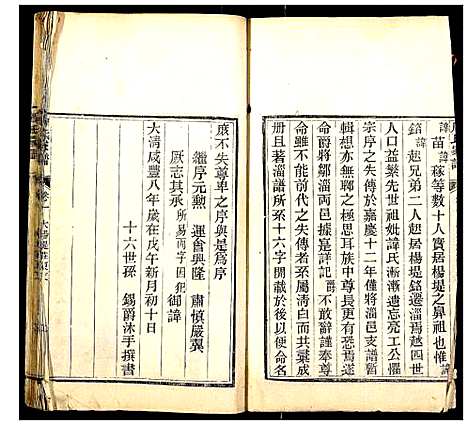 諱苗諱稼等數十人實居楊堤之鼻祖也
銘諱超兄弟二人超居楊堤銘遷淄焉越四世
人口益繁先世祖妣諱氏漸漸遺忘亮工公懼
宗序之失傳於嘉慶十二年僅將淄邑支譜暫
輯想亦無聊之極思耳族中尊長更有恐焉遂
命爵將鄒淄兩邑據彙詳考爵不敢辭謹奉尊
命雖不能前代之失傳者溯清白而共葉成
册且著淄譜所系十六字開載於後以便命名
庶不失尊卑之序與是為序
繼序元勲 運會興隆 肅慎嚴翼
厥志其承 所易兩字因犯御諱
大清咸豐八年歲在戊午新月初十日
十六世孫 錫爵沐手撰書